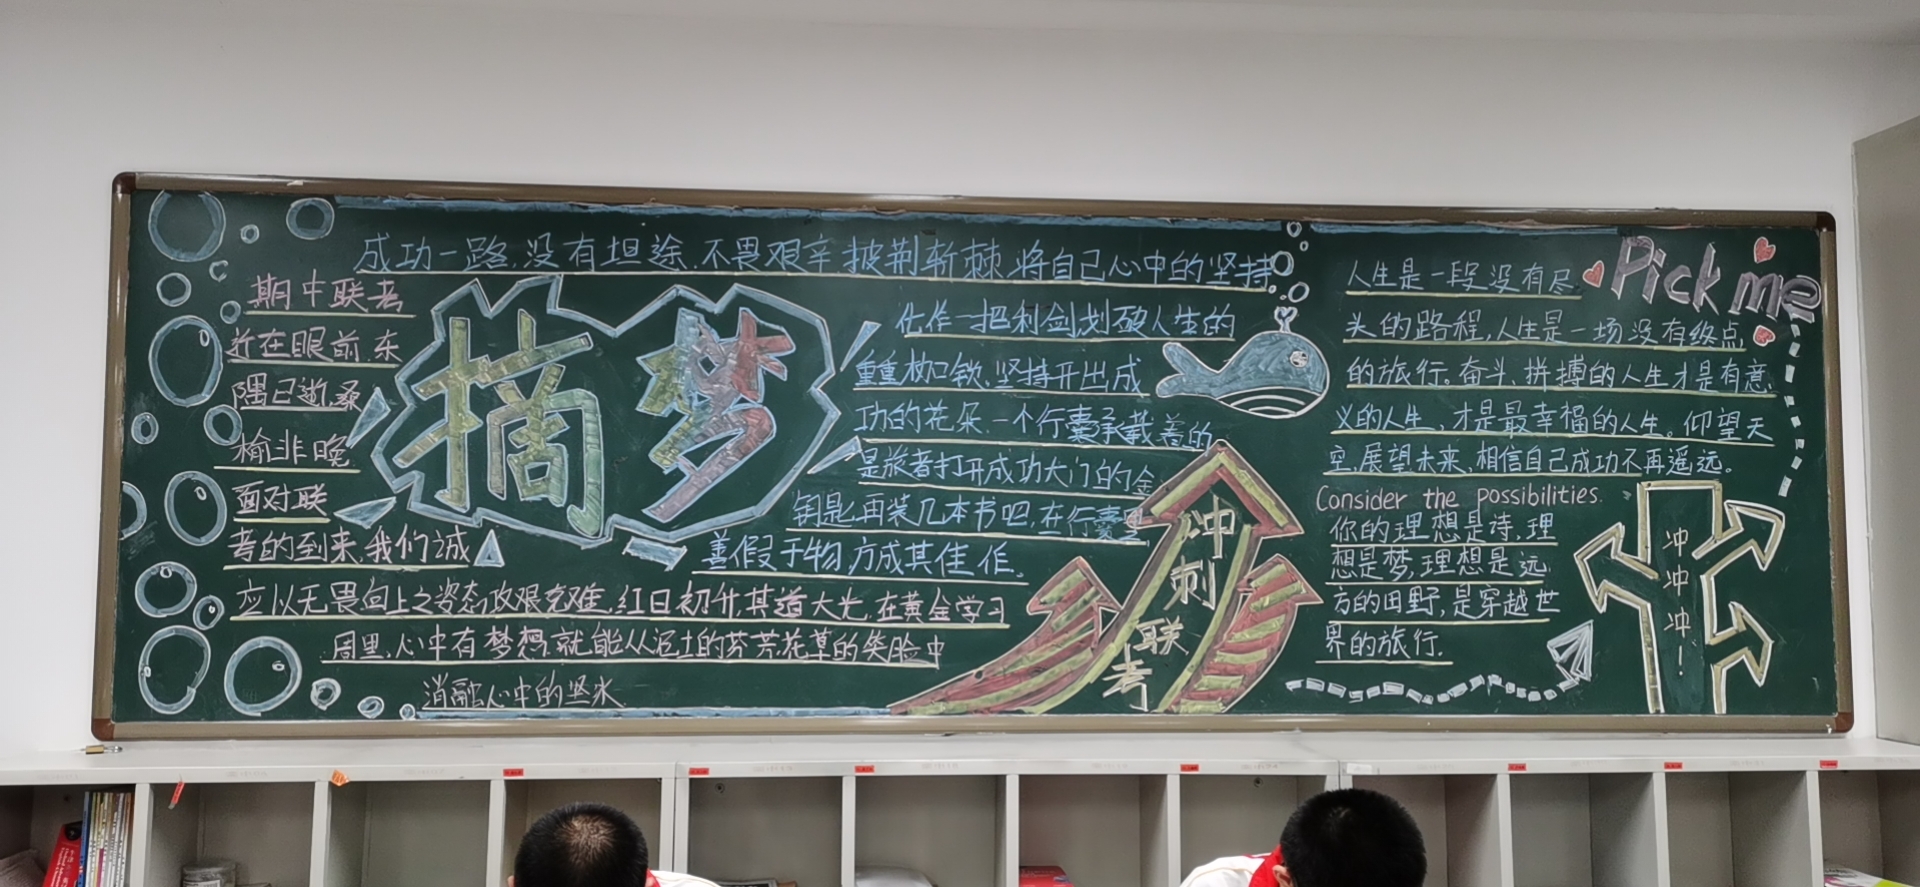 成功一路,没有坦途.不畏艰辛披荆斩棘.将自己心中的坚持
化作一把利剑划破人生的
重重枷锁.坚持开出成
功的花朵.一个行囊承载着的
是旅者打开成功大门的金
钥匙.再装几本书吧,在行囊里
善假于物,方成其佳作.
期中联考
近在眼前.东
隅已逝.桑
榆非晚
面对联
考的到来,我们诚
应以无畏向上之姿态,攻艰克难,红日初升,其道大光.在黄金学习
周里,心中有梦想,就能从泥土的芬芳,花草的笑脸中
消融心中的坚冰.
摘梦
冲刺
联考
人生是一段没有尽
头的路程,人生是一场没有终点
的旅行。奋斗、拼搏的人生才是有意
义的人生、才是最幸福的人生。仰望天
空,展望未来,相信自己成功不再遥远。
Consider the possibilities.
你的理想是诗,理
想是梦,理想是远
方的田野,是穿越世
界的旅行.
Pick me
冲冲冲!